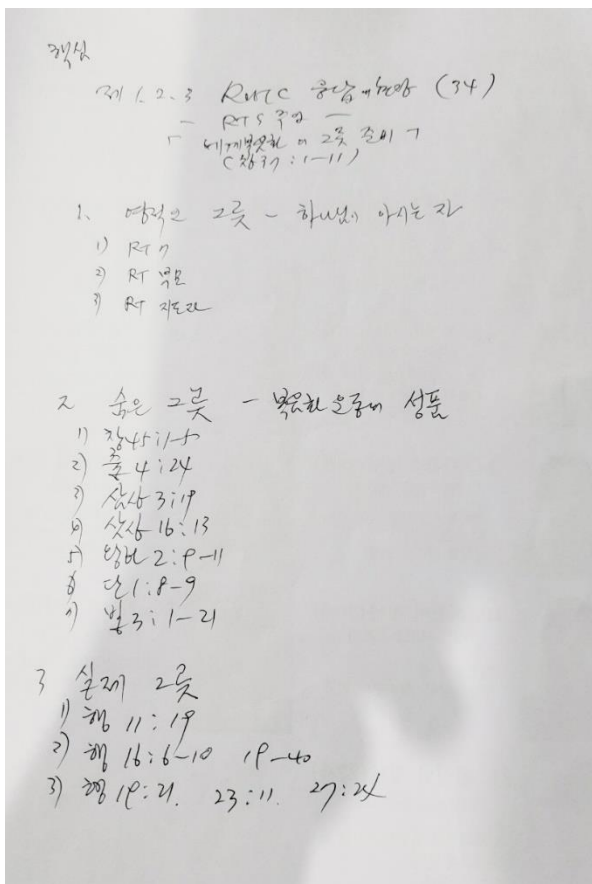 핵심
제 1. 2. 3 RUTC 응답의 현장 (34)
- RT 5 주역 -
「 세계복음화의 그릇 준비 」
(창 37 : 1-11)
1. 영적인 그릇 - 하나님이 아시는 자
1) RT 7
2) RT 부모
3) RT 지도자
2 숨은 그릇 - 복음화 운동의 성품
1) 창 45 : 1-5
2) 출 4 : 24
3) 삼상 3 : 19
4) 삼상 16 : 13
5) 왕하 2 : 9-11
6) 단 1 : 8-9
7) 빌 3 : 1-21
3 실제 그릇
1) 행 11 : 19
2) 행 16 : 6-10 19-40
3) 행 19 : 21. 23 : 11. 27 : 24